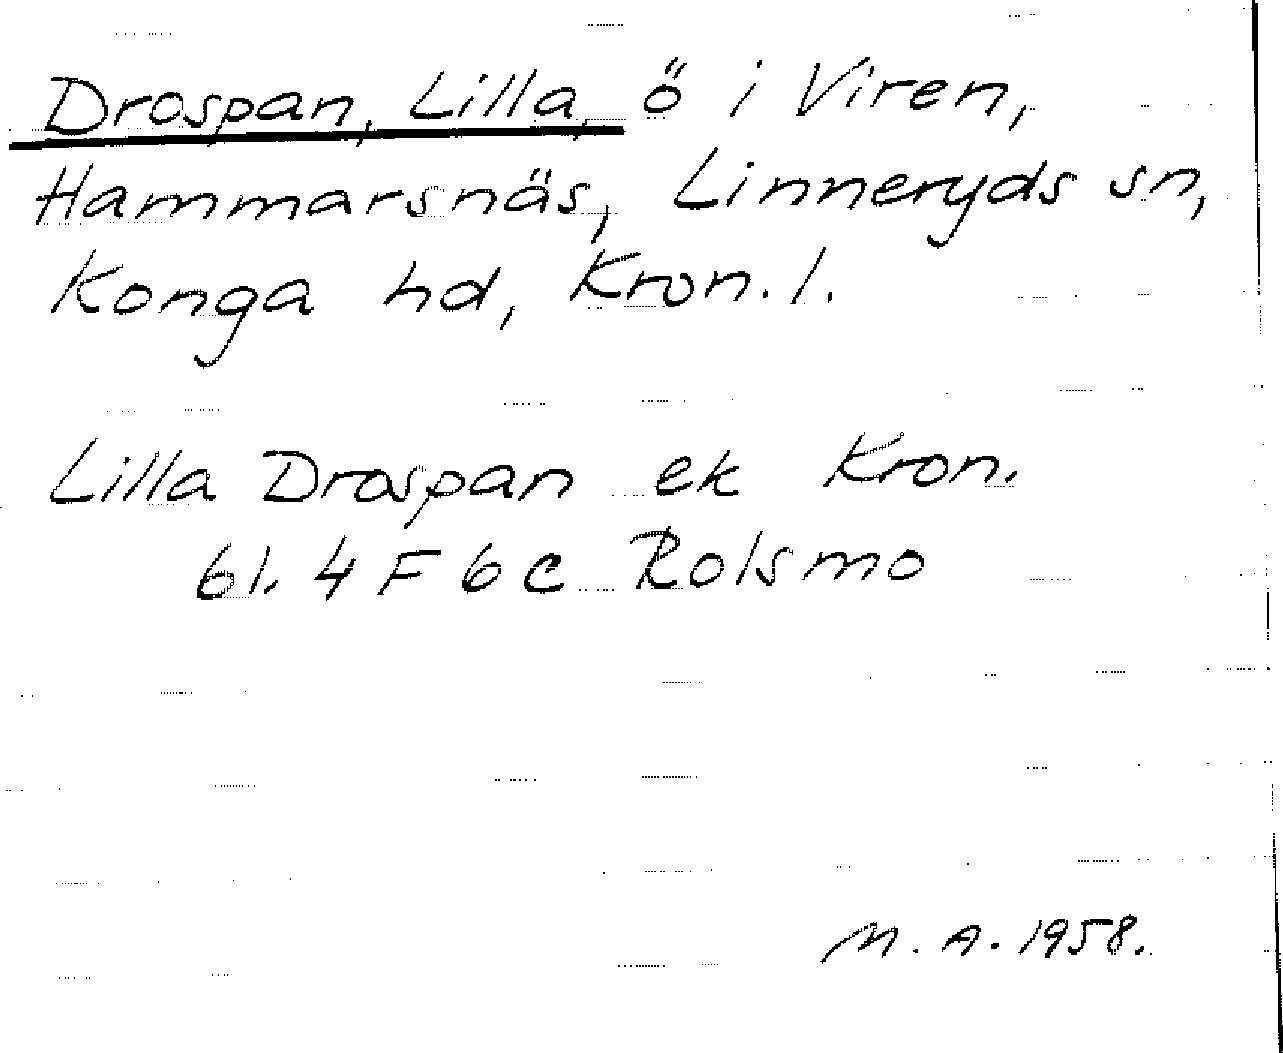 Drospan, Lilla, ö i Viren,
Hammarsnäs, Linneryds sn,
Konga hd, Kron. l.
Lilla Drospan ek Kron.
bl. 4 F 6 c Rolsmo
M. A. 1958.